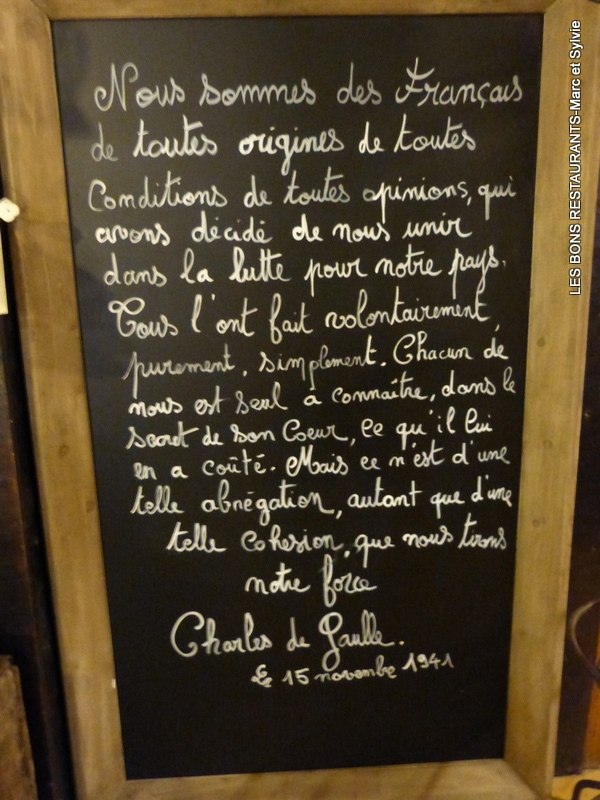 Nous sommes des Français
de toutes origines de toutes
Conditions de toutes opinions, qui
avons décidé de nous unir
dans la lutte pour notre pays.
Tous l'ont fait volontairement,
purement, simplement. Chacun de
nous est seul à connaître, dans le
secret de son Coeur, ce qu'il lui
en a coûté. Mais ce n'est d'une
telle abnégation, autant que d'une
telle cohesion, que nous tirons
notre force
Charles de Gaulle.
Le 15 novembe 1941
LES BONS RESTAURANTS-Marc et Sylvie